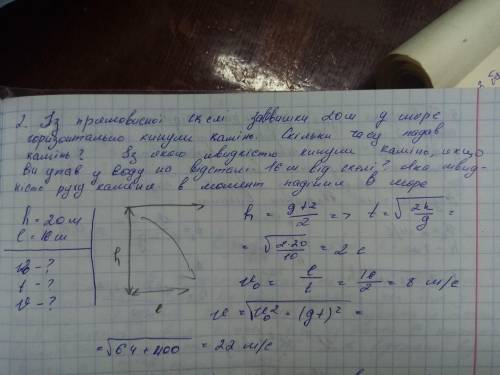 2. Із прямовисної скелі заввишки 20м у море
горизонтально кинули камінь. Скільки часу падав
камінь? Із якою швидкістю кинули камінь, якщо
він упав у воду на відстані 16м від скелі? Яка швид-
кість руху каменя в момент падіння в море
h = 20м
l = 16м
v₀ - ?
t - ?
v - ?
h
l
h = gt2/2 => t = √(2h/g) =
= √(2·20/10) = 2 с
v₀ = l/t = 16/2 = 8 м/с
v = √(v₀² = (gt)²) =
= √(64 + 400) = 22 м/с